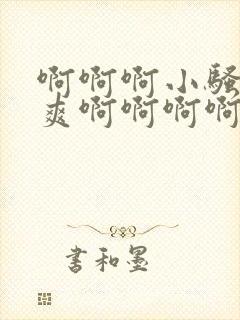 啊啊啊小骚
爽啊啊啊啊
书和墨